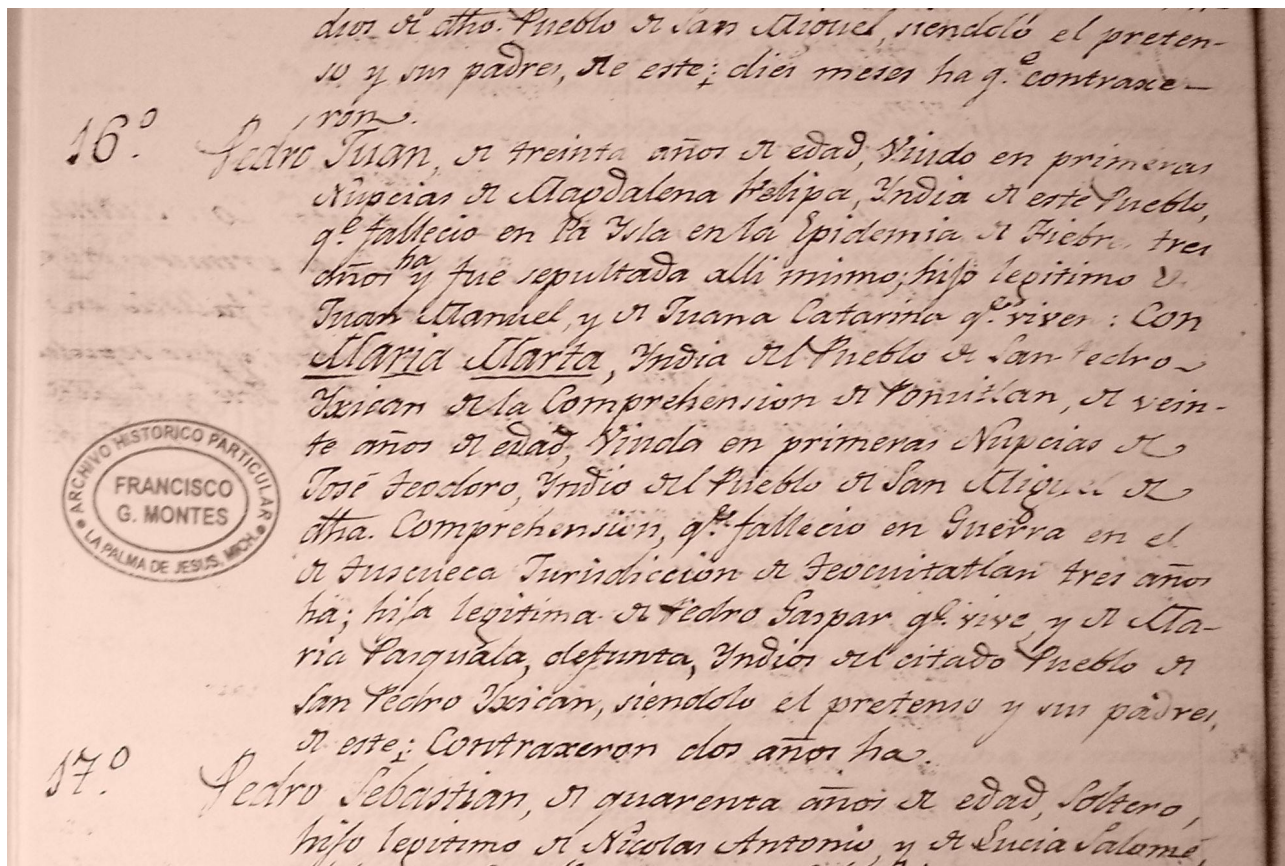 dios de dho. Pueblo de San Miguel, siendolo el preten-
so y sus padres, de este; dies meses ha q.e contraxe-
ron.
16.o Pedro Juan, de treinta años de edad, Viudo en primeras
Nupcias de Magdalena Felipa, Yndia de este Pueblo,
q.e fallecio en la Ysla en la Epidemia de Fiebre tres
años ha y fue sepultada alli mimo; hijo legitimo de
Juan Manuel, y de Juana Catarina q.e viven: Con
Maria Marta, Yndia del Pueblo de San Pedro
Yxican de la Comprehension de Poncitlan, de vein-
te años de edad, Viuda en primeras Nupcias de
José Teodoro, Yndio del Pueblo de San Miguel de
dha. Comprehension, q.e fallecio en Guerra en el
de Tuscueca Jurisdiccion de Teocuitatlan tres años
ha; hija legitima de Pedro Gaspar q.e vive, y de Ma-
ria Pasquala, defunta, Yndios del citado Pueblo de
San Pedro Yxican, siendolo el pretenso y sus padres,
de este; Contraxeron dos años ha.
17.o Pedro Sebastian, de quarenta años de edad, Soltero,
hijo legitimo de Nicolas Antonio, y de Lucia Salomé
ARCHIVO HISTORICO PARTICULAR
FRANCISCO
G. MONTES
LA PALMA DE JESUS, MICH.